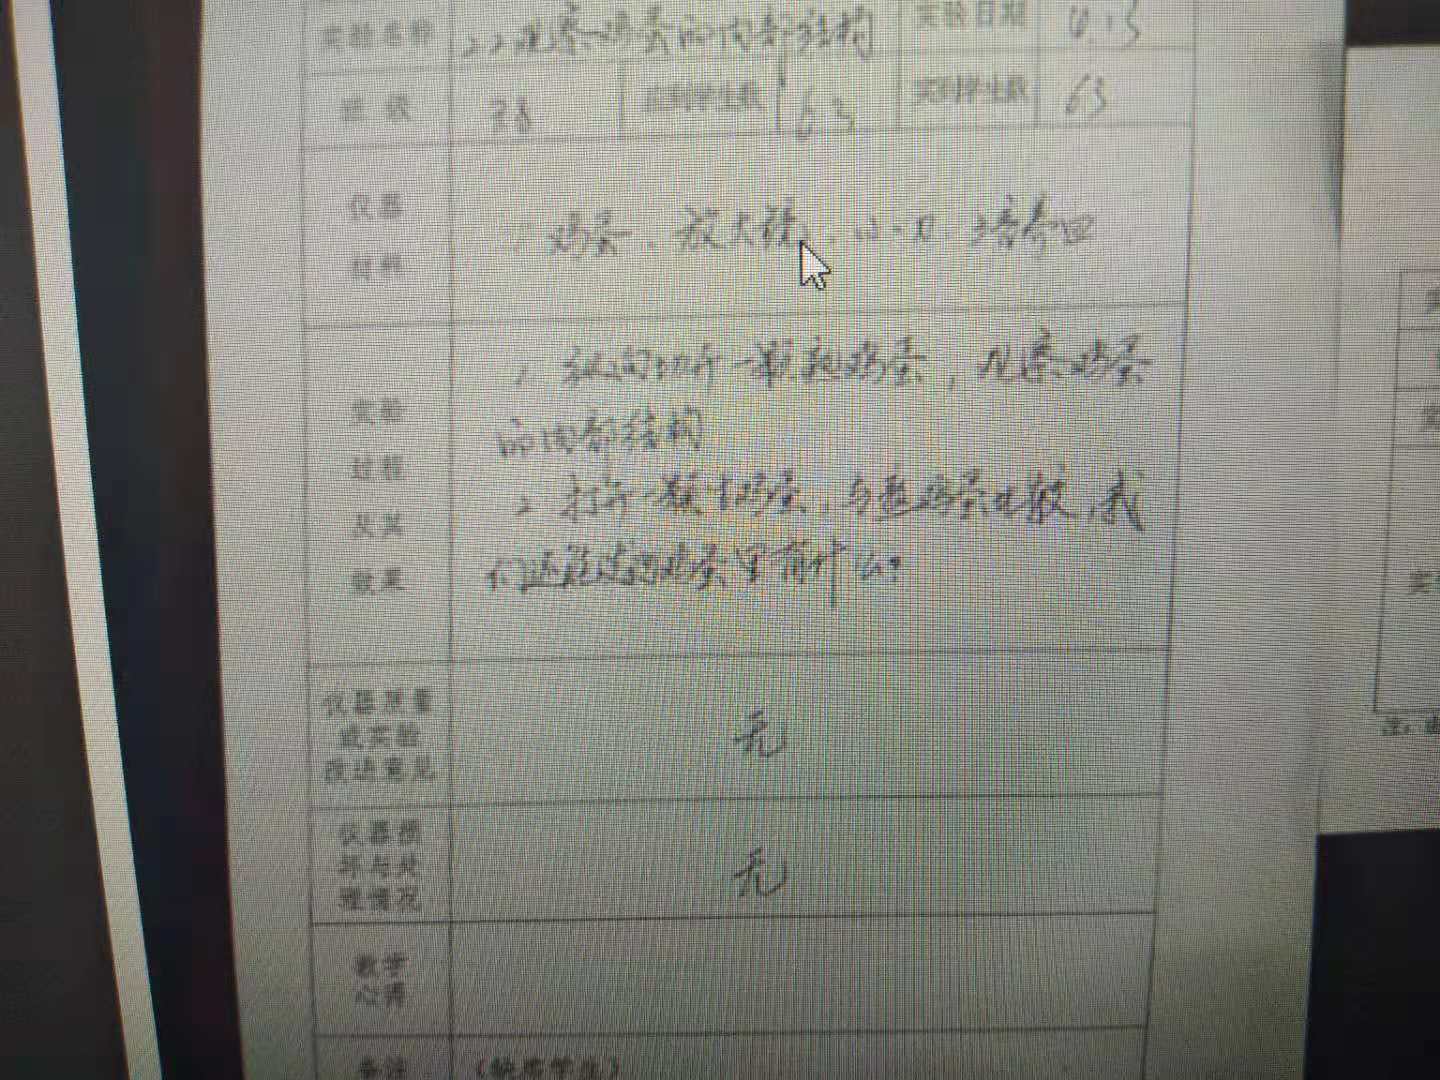 实验名称 22观察鸡蛋的内部结构 实验日期
班级 应到学生数 63 实到学生数 63
仪器
材料
鸡蛋、放大镜、小刀、培养皿
实验
过程
及其
效果
1、纵向切开一颗熟鸡蛋，观察鸡蛋
的内部结构
2、打开一颗生鸡蛋，与熟鸡蛋比较，我
们还能发现鸡蛋里有什么？
仪器质量
或实验
改进意见
无
仪器损
坏与处
理情况
无
教学
心得
备注 （缺席学生）